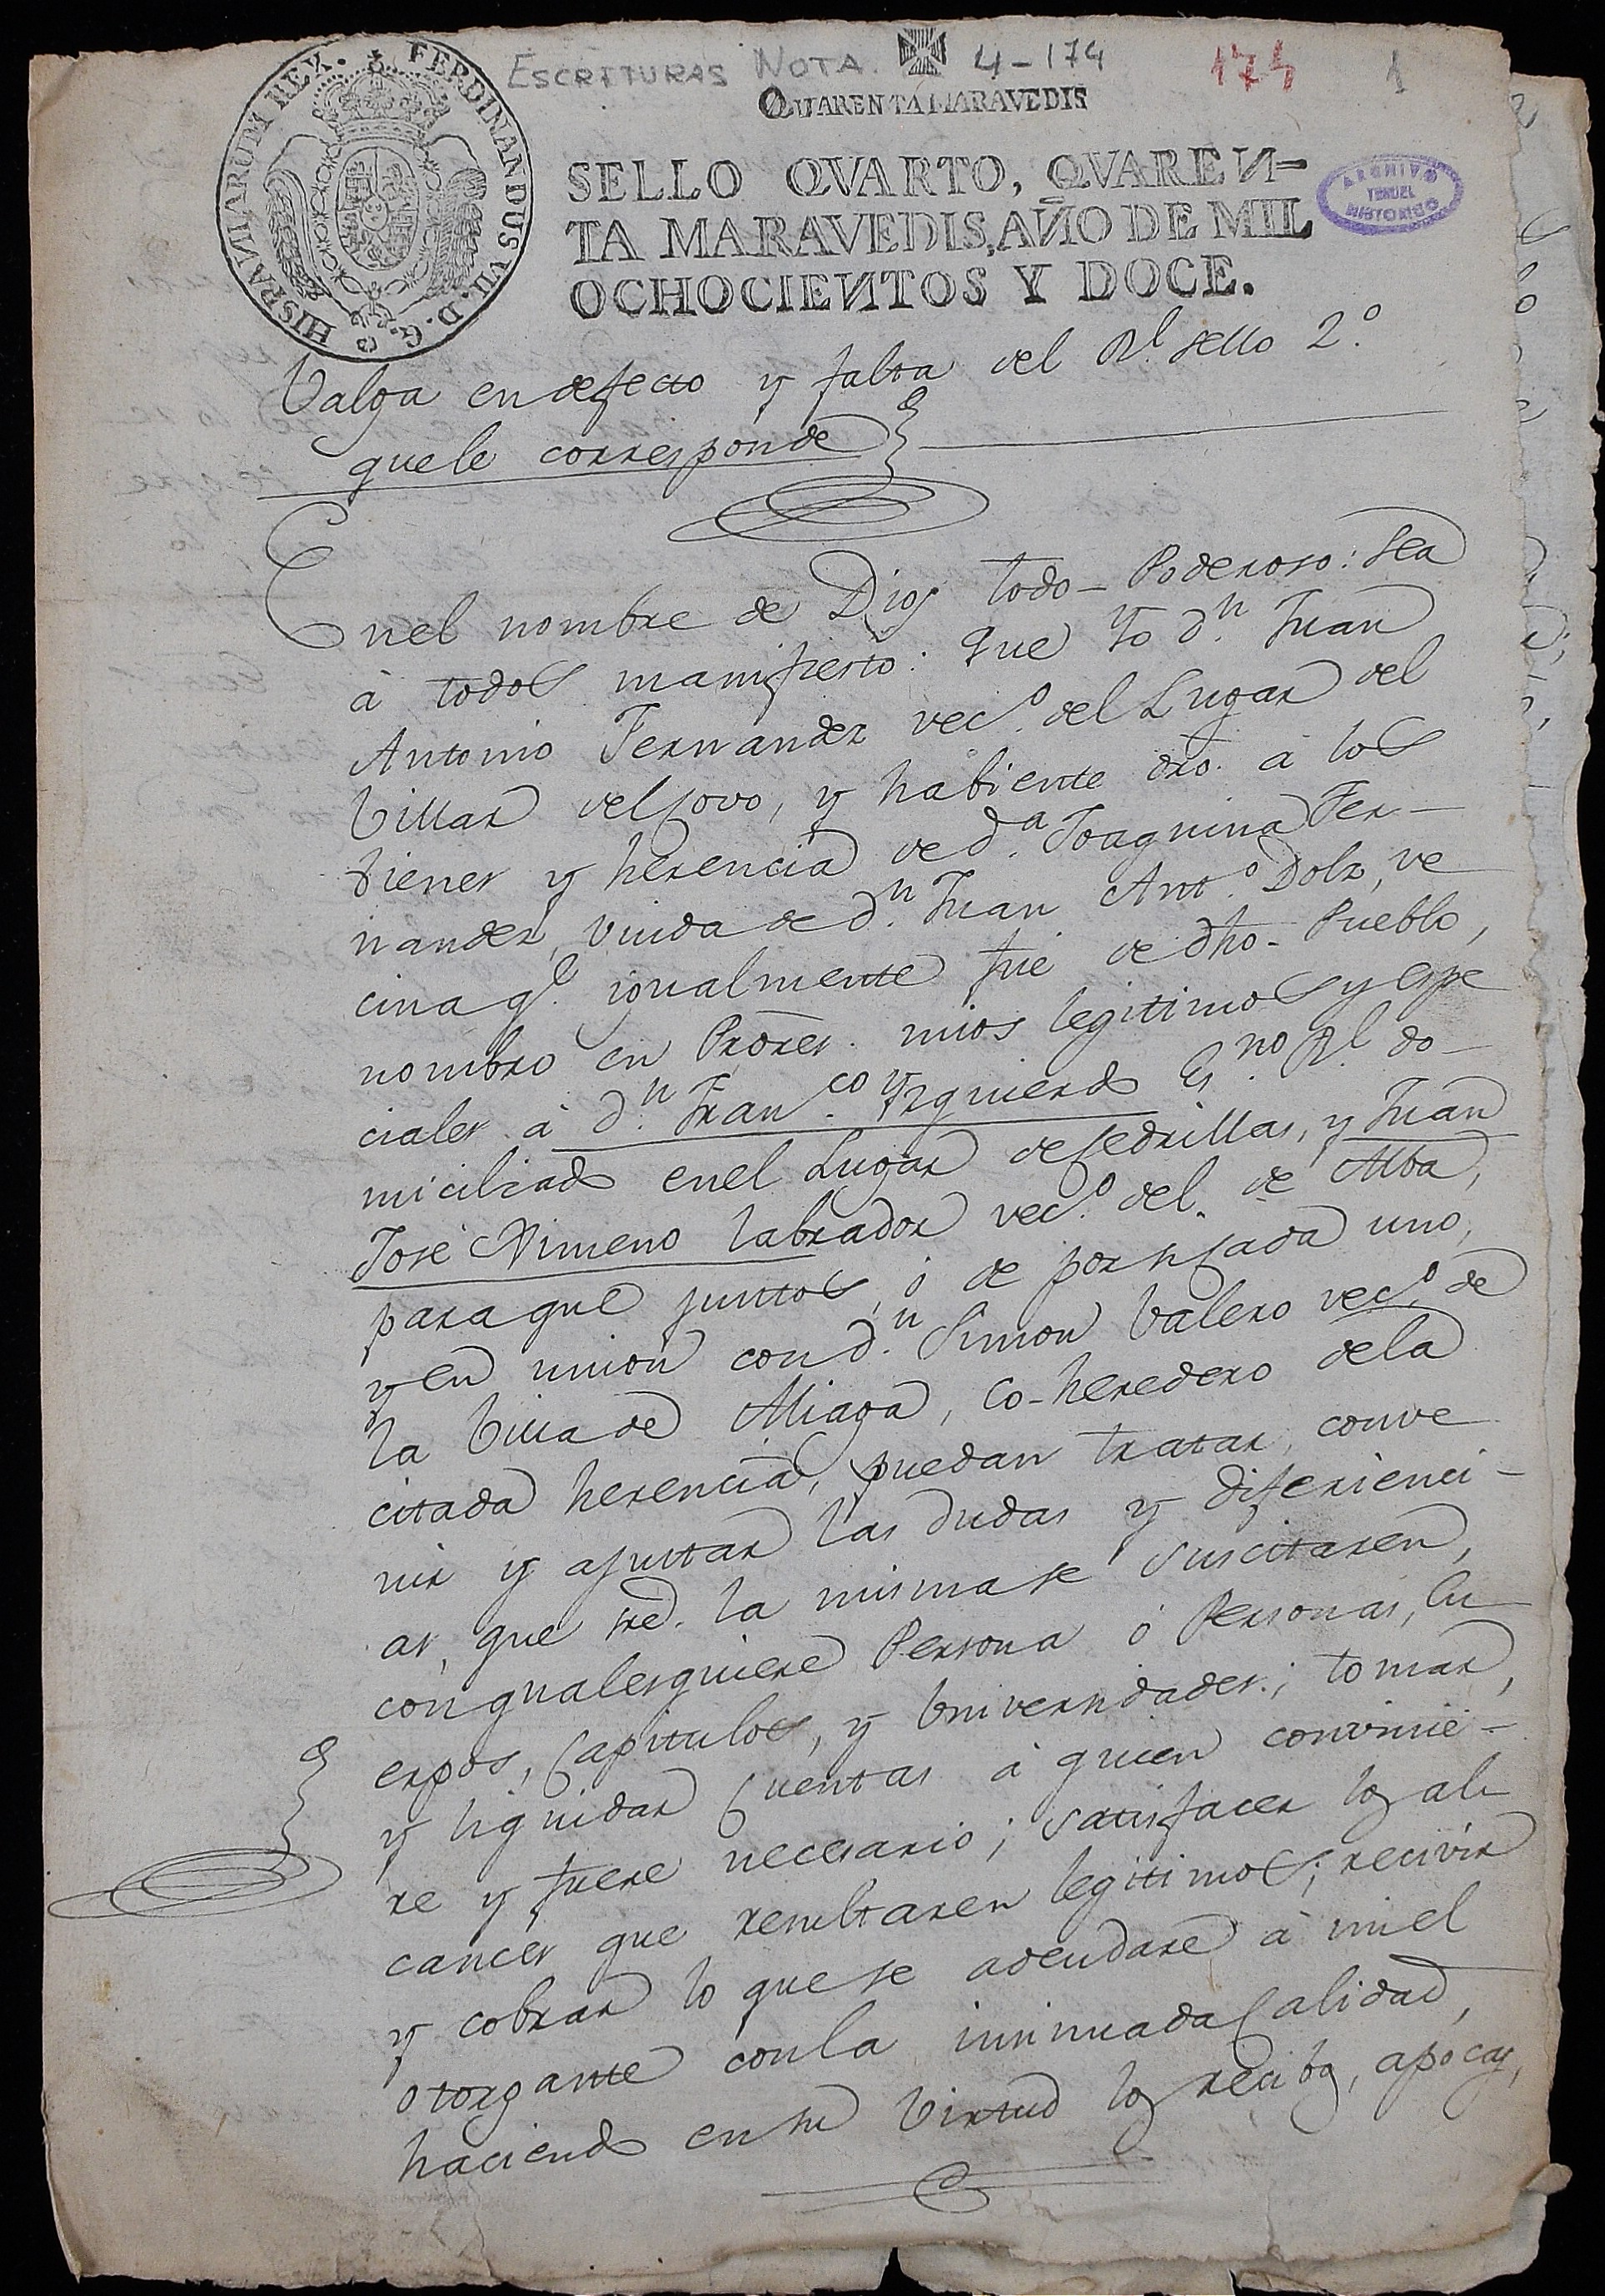 HISPANIARUM REX. FERDINANDUS VII. D. G.
ESCRITURAS NOTA. 4-174
174
1
QUARENTA MARAVEDIS
SELLO QVARTO, QVAREN-
TA MARAVEDIS, AÑO DE MIL
OCHOCIENTOS Y DOCE.
ARCHIVO
TERUEL
HISTORICO
Valga en defecto y falta del Rl. sello 2.º
quele corresponde
Enel nombre de Dios todo-Poderoso: Sea
à todos manifiesto: Que Yo dn. Juan
Antonio Fernandez vec.º del Lugar del
Villar del Covo, y habiente dro. à los
bienes y herencia de d.a Joaquina Fer-
nandez, viuda de dn. Juan Ant.º Dolz, ve
cina q.e igualmente fue de dho. Pueblo,
nombro en Prôres. mios legitimos y espe
ciales à dn. Fran.co Yzquierdo Es.no Rl. do-
miciliado enel Lugar de Cedrillas, y Juan
José Ximeno labrador vec.º del. de Alba,
para que juntos, ò de por si cada uno,
y en union con dn. Simon Valero vec.º de
la Villa de Aliaga, co-heredero dela
citada herencia, puedan tratar, conve
nir y ajustar las dudas y diferienci-
as, que sre. la misma se suscitaren,
con qualesquiere Persona ò Personas, Cu
erpos, Capitulos, y Universidades; tomar,
y liquidar Cuentas à quien convinie-
re y fuere necesario; satisfacer los alc
cances que resultaren legitimos; recivir
y cobrar lo que se adeudare à mi el
otorgante con la insinuada Calidad,
haciendo en su Virtud los recibos, apocas,